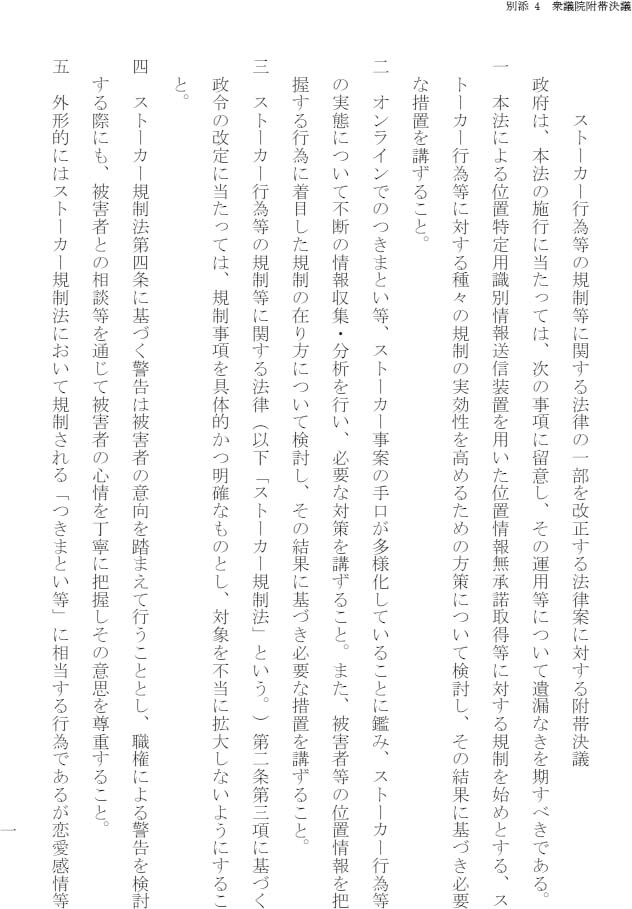 別添 4 衆議院附帯決議
ストーカー行為等の規制等に関する法律の一部を改正する法律案に対する附帯決議
政府は、本法の施行に当たっては、次の事項に留意し、その運用等について遺漏なきを期すべきである。
一 本法による位置特定用識別情報送信装置を用いた位置情報無承諾取得等に対する規制を始めとする、ス
トーカー行為等に対する種々の規制の実効性を高めるための方策について検討し、その結果に基づき必要
な措置を講ずること。
二 オンラインでのつきまとい等、ストーカー事案の手口が多様化していることに鑑み、ストーカー行為等
の実態について不断の情報収集・分析を行い、必要な対策を講ずること。また、被害者等の位置情報を把
握する行為に着目した規制の在り方について検討し、その結果に基づき必要な措置を講ずること。
三 ストーカー行為等の規制等に関する法律（以下「ストーカー規制法」という。）第二条第三項に基づく
政令の改定に当たっては、規制事項を具体的かつ明確なものとし、対象を不当に拡大しないようにするこ
と。
四 ストーカー規制法第四条に基づく警告は被害者の意向を踏まえて行うこととし、職権による警告を検討
する際にも、被害者との相談等を通じて被害者の心情を丁寧に把握しその意思を尊重すること。
五 外形的にはストーカー規制法において規制される「つきまとい等」に相当する行為であるが恋愛感情等
一